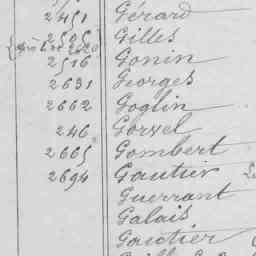 2451 Gérard
2505 Gilles
2516 Gonin
2631 Georges
2662 Goglin
246 Gorsel
2665 Gombert
2694 Gautier
Guerrant
Galais
Gautier